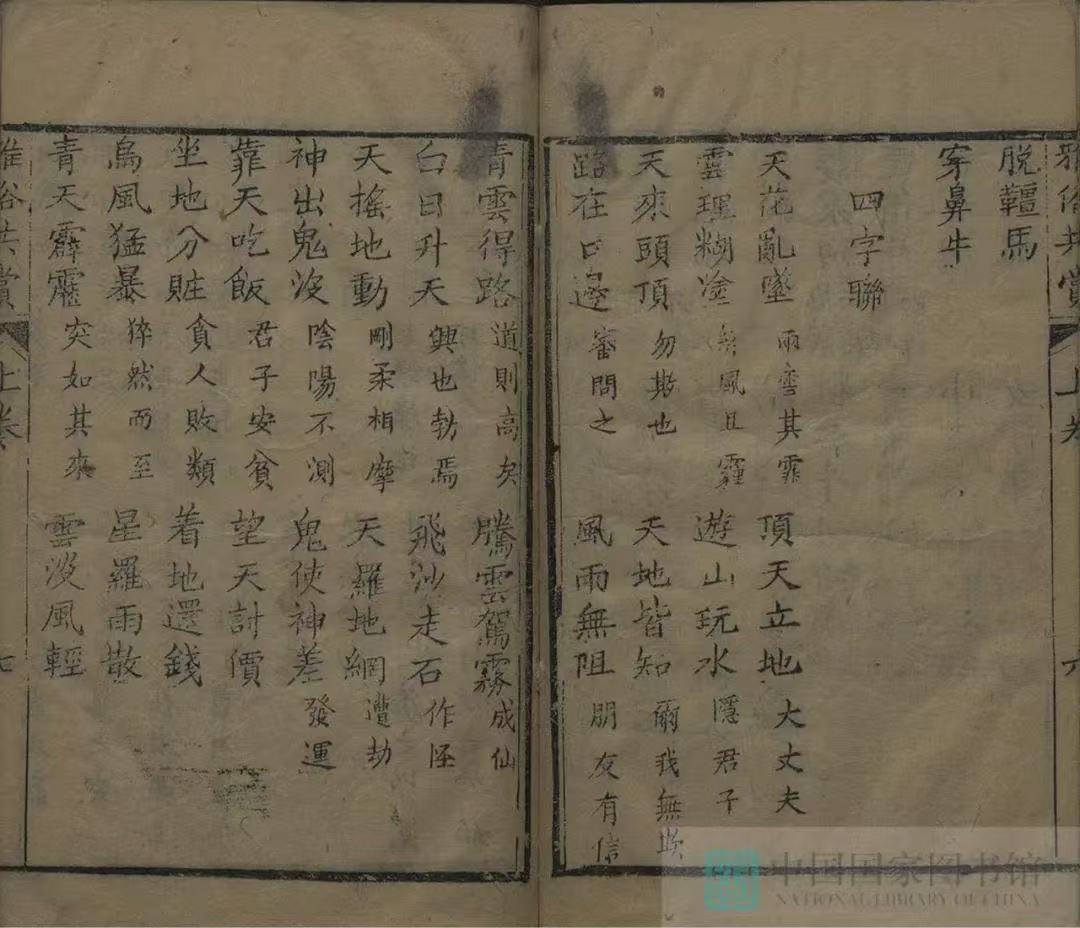 雅俗共賞
上卷
六
脱韁馬
穿鼻牛
四字聯
天花亂墜 雨雪其霏 頂天立地 大丈夫
雲理糊塗 無風且霾 遊山玩水 隱君子
天來頭頂 勿欺也 天地皆知 爾我無欺
路在口邊 審問之 風雨無阻 朋友有信
青雲得路 道則高矣 騰雲駕霧 成仙
白日升天 興也勃焉 飛沙走石 作怪
天搖地動 剛柔相摩 天羅地網 遭劫
神出鬼沒 陰陽不測 鬼使神差 發運
靠天吃飯 君子安貧 望天討價
坐地分賍 貪人敗類 着地還錢
烏風猛暴 猝然而至 星羅雨散
青天霹靂 突如其來 雲淡風輕
雅俗共賞
上卷
七
中国国家图书馆
NATIONAL LIBRARY OF CHINA